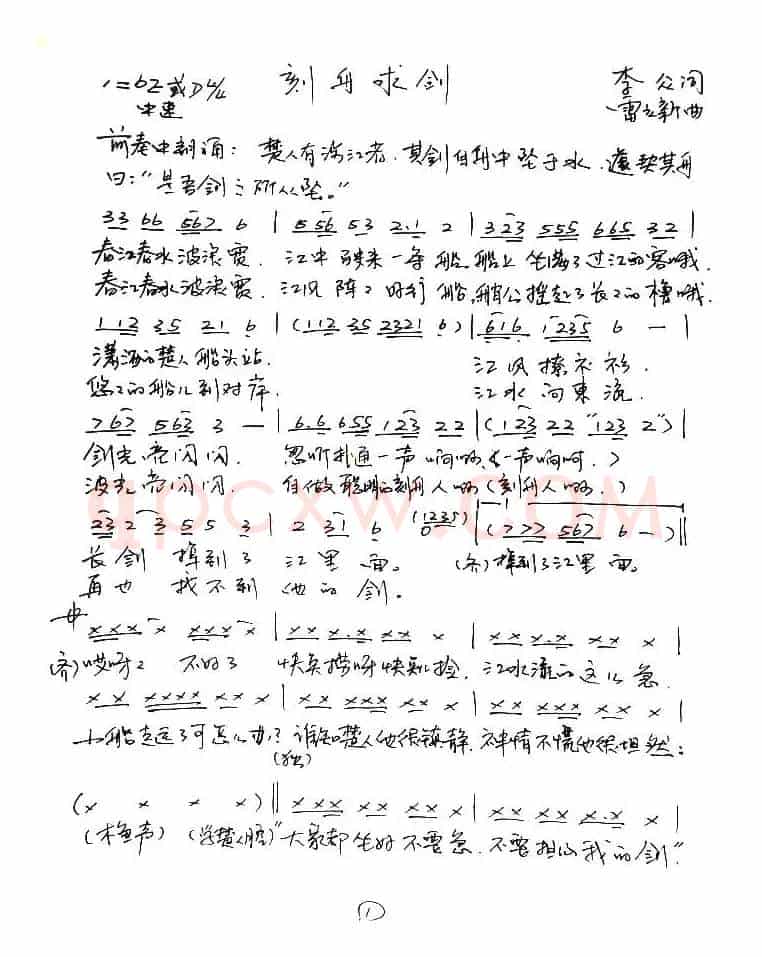 刻舟求剑
1=bE或D 4/4 李众词
中速 雷立新曲
前奏中朗诵：楚人有涉江者，其剑自舟中坠于水，遽契其舟
曰：“是吾剑之所从坠。”
33 66 567 6 | 5 56 53 2.1 2 | 323 555 665 32 |
春江春水波浪宽，江中驶来一条船，船上坐满了过江的客哦，
春江春水波浪宽，江风阵阵好行船，艄公摇起了长长的橹哦，
112 35 21 6 | (112 35 2321 6) | 616 1235 6 — |
潇洒的楚人船头站， 江风撩衣衫，
悠悠的船儿到对岸， 江水向東流，
767 563 3 — | 6.6 655 123 22 | (123 22 "123 2") |
剑光亮闪闪， 忽听扑通一声响啊，(一声响啊，)
波光亮闪闪， 自做聪明的刻舟人啊，(刻舟人啊，)
23 2 3 5 5 3 | 2 31 6 (1235) 0 | (777 567 6 —) ‖
长剑 掉到了 江里 面。 (齐)掉到了江里面。
再也 找不到 他的剑。
xxx x xxx x | xx x.x xx x | xxx x.x xx x |
齐)哎呀 不好了 快矣捞呀快矣捡，江水流的这么急，
xx xxxx xx x | xx xxx xx x | xx xxx xx x |
小船走远了可怎么办？谁知楚人他很镇静，神情不慌他很坦然：
(独)
(x x x x) ‖ xxx xx xx x | xx xx x.x x |
(木鱼声) (学楚人腔)“大家都坐好不要急，不要担心我的剑”
1
qpcxw.com